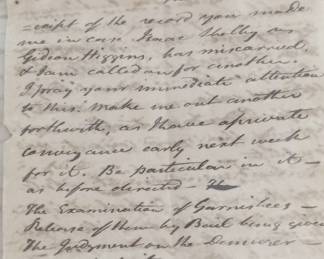 =cript of the record you made
me in case Isaac Shelby vs
Gideon Higgins, has miscarried,
& I am called on for another.
I pray your immediate attention
to this. Make me out another
forthwith, as I have a private
conveyance early next week
for it. Be particular in it —
as before directed —
The Examination of Garnishees —
Release of them by Bail being given
The Judgment on the Demurer —